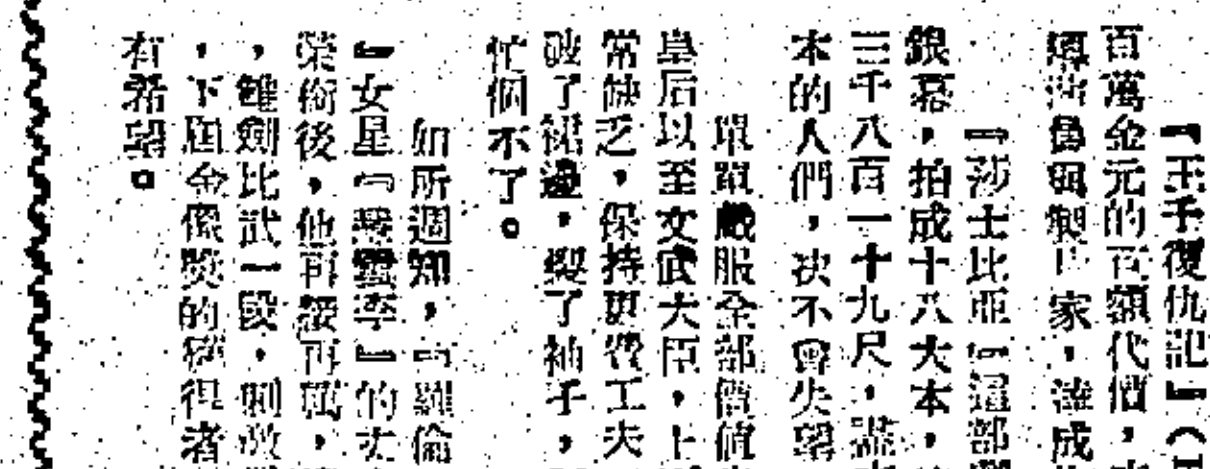 『王子復仇記』（
百萬金元的巨額代價，
導演爲與製片家，達成
『莎士比亞』這部
銀幕，拍成十八大本，
三千八百一十九尺，講
本的人們，决不會失望
單單戲服全部價值
皇后以至文武大臣，上
常缺乏，保持更費工夫
破了裙邊，裂了袖子，
忙個不了。
如所週知，『羅倫
』女星『費雯李』的丈
榮銜後，他再接再厲，
，雖劍比武一段，
，下屆金像獎的獲得者
有希望。